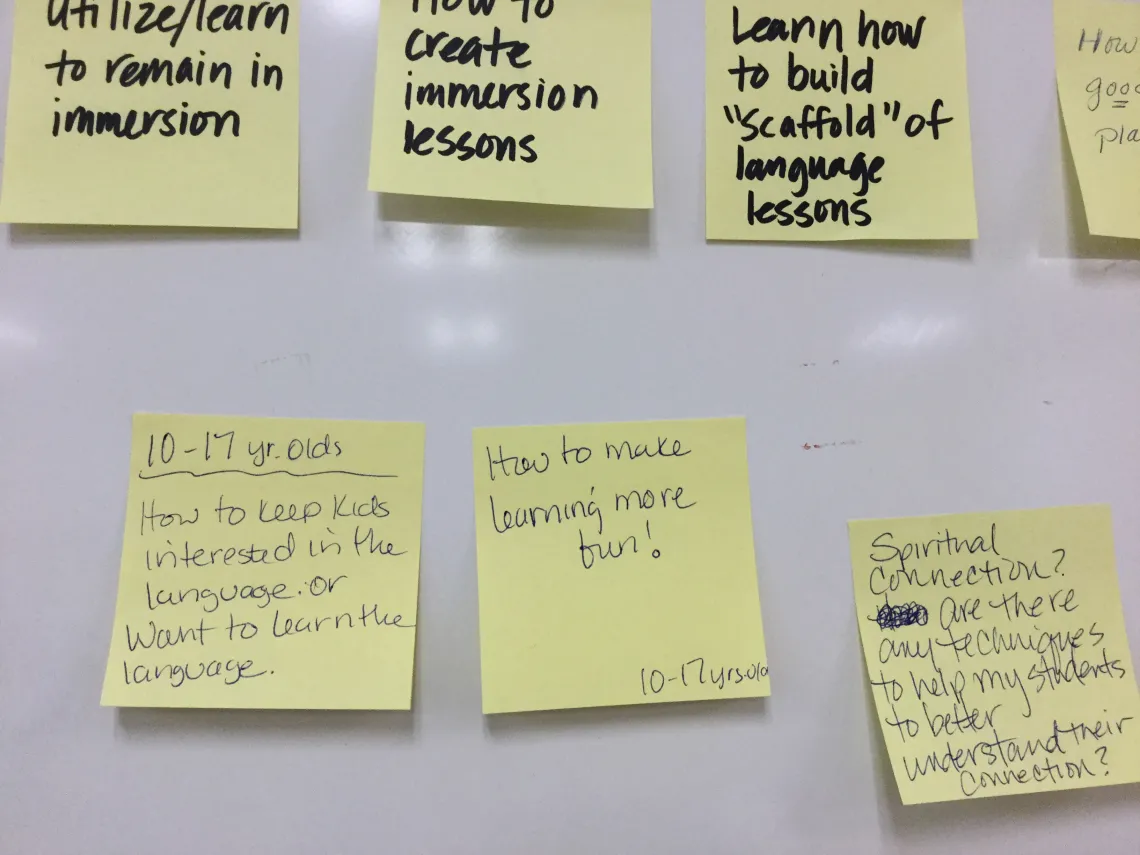 utilize/learn
to remain in
immersion
How to
create
immersion
lessons
Learn how
to build
"scaffold" of
language
lessons
How
goo
pla
10-17 yr. olds
How to keep kids
interested in the
language. or
Want to learn the
language.
How to make
learning more
fun!
10-17 yrs. old
Spiritual
connection?
are there
any techniques
to help my students
to better
understand their
connection?